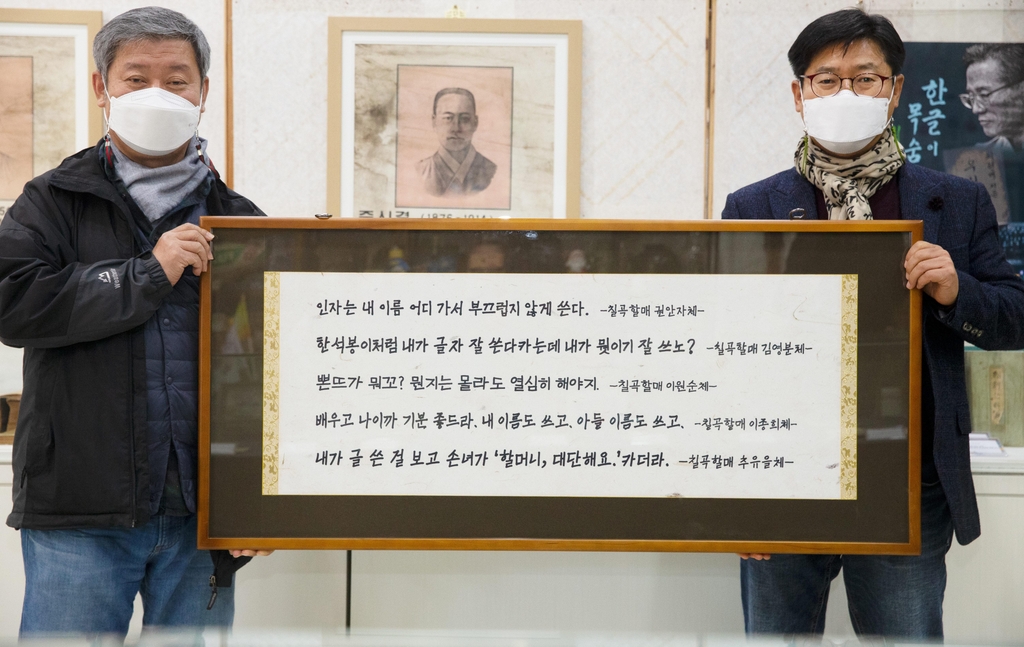 한글이
목숨
(1876~1914)
인자는 내 이름 어디 가서 부끄럽지 않게 쓴다. -칠곡할매 권안자체-
한석봉이처럼 내가 글차 잘 쓴다카는데 내가 뭣이기 잘 쓰노? -칠곡할매 김영분체-
뽄뜨가 뭐꼬? 뭔지는 몰라도 열심히 해야지. -칠곡할매 이원순체-
배우고 나이까 기분 좋드라. 내 이름도 쓰고, 아들 이름도 쓰고. -칠곡할매 이종희체-
내가 글 쓴 걸 보고 손녀가 '할머니, 대단해요.'카더라. -칠곡할매 추유을체-